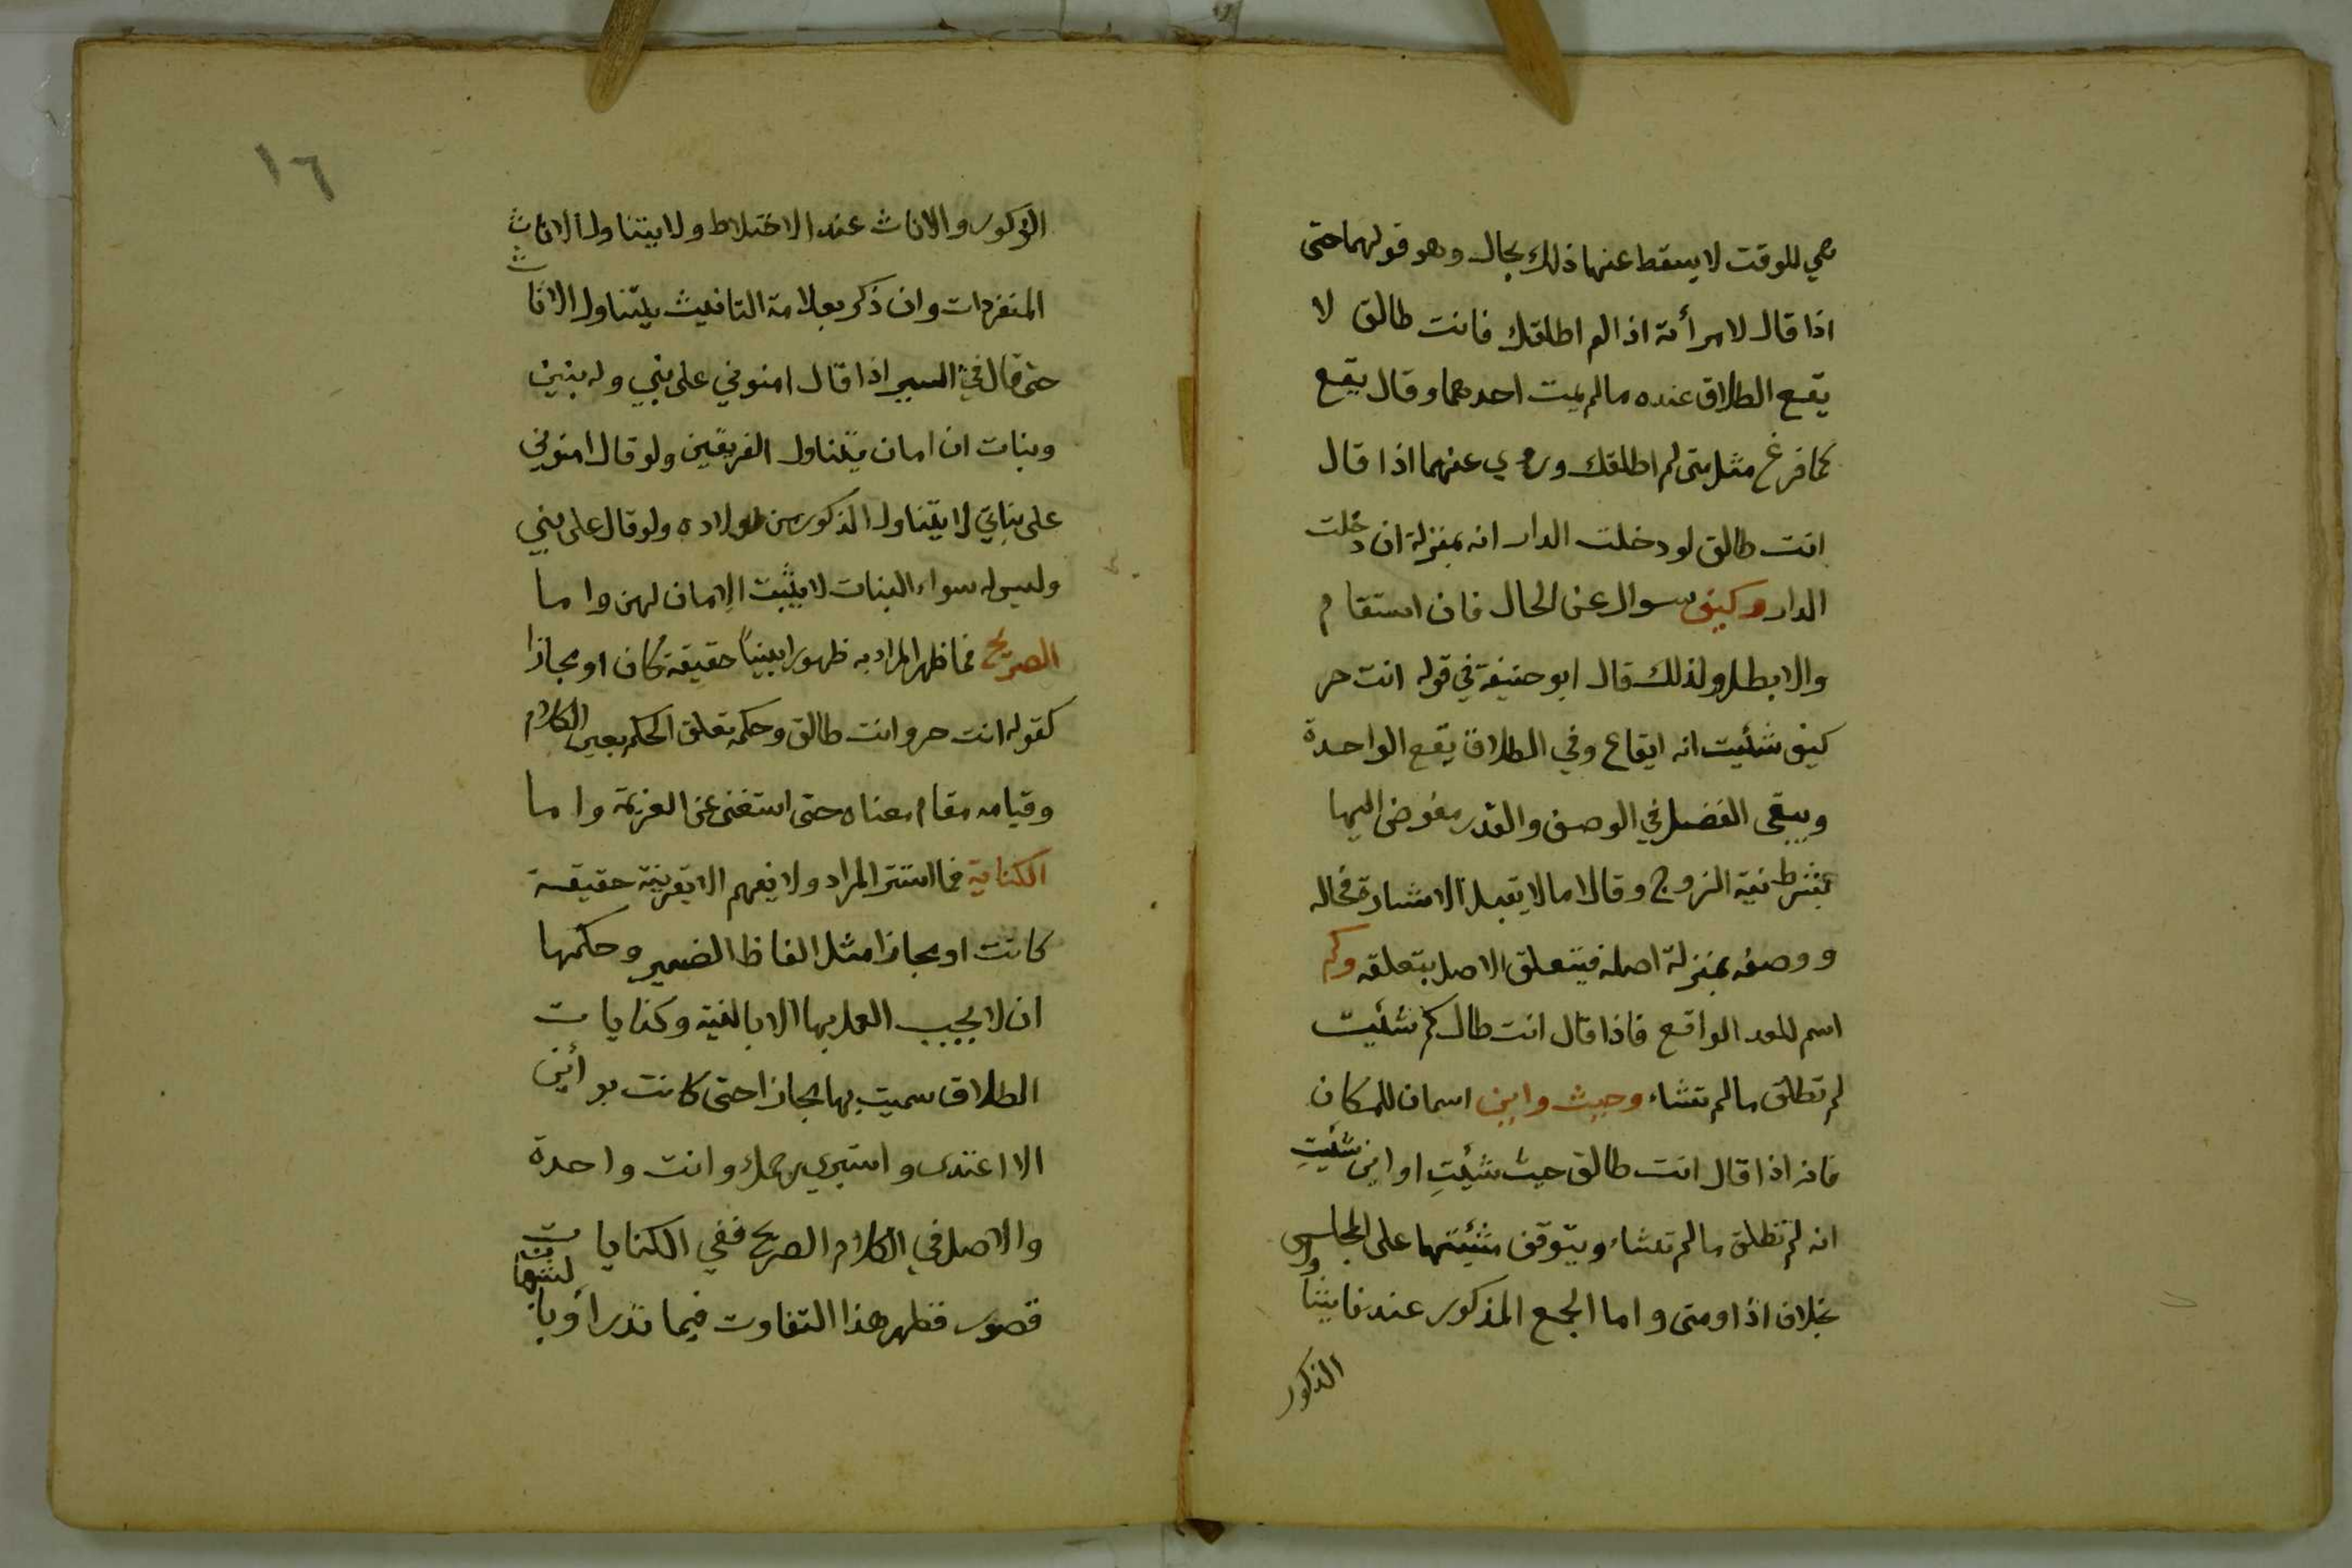 هي للوقت لا يسقط عنها ذلك بحال وهو قولهما حتى
اذا قال لامرأته اذا لم اطلقك فانت طالق لا
يقع الطلاق عنده مالم يمت احدهما وقال يقع
كما فرغ مثل متى لم اطلقك وروي عنهما اذا قال
انت طالق لو دخلت الدار انه بمنزلة ان دخلت
الدار وكيف سوال عن الحال فان استقام
والا بطل ولذلك قال ابو حنيفة في قوله انت حر
كيف شئيت انه ايقاع وفي الطلاق يقع الواحدة
ويبقى الفضل في الوصف والقدر مفوض اليها
بشرط نية الزوج وقالا مالا يقبل الاشارة فحاله
ووصفه بمنزلة اصله فيتعلق الاصل بتعلقه وكم
اسم للعدد الواقع فاذا قال انت طالق كم شئيت
لم تطلق مالم تشاء وحيث واين اسمان للمكان
فانه اذا قال انت طالق حيث شئيتِ او اين شئيتِ
انه لم تطلق مالم تشاء ويتوقف مشيئتها على المجلس
بخلاف اذا ومتى واما الجمع المذكور عندنا يتناول
الذكور
١٦
الذكور والاناث عند الاختلاط ولا يتناول الاناث
المنفردات وان ذكر بعلامة التانيث يتناول الاناث
حتى قال في السير اذا قال امنوني على بني وله بنين
وبنات ان امان يتناول الفريقين ولو قال امنوني
على بناتي لا يتناول الذكور من اولاده ولو قال على بني
وليس له سواء البنات لا يثبت الامان لهن واما
الصريح فما ظهر المراد به ظهورا بينًا حقيقة كان او مجازا
كقوله انت حر وانت طالق وحكمه تعلق الحكم بعين الكلام
وقيامه مقام معناه حتى استغنى عن العزيمة واما
الكناية فما استتر المراد ولا يفهم الا بقرينة حقيقة
كانت او مجازا مثل الفاظ الضمير وحكمها
ان لا يجب العمل بها الا بالنية وكنايات
الطلاق سميت بها مجازا حتى كانت بوأين
الا اعتدى واستبري رحمك وانت واحدة
والاصل في الكلام الصريح ففي الكنايات
قصور فظهر هذا التفاوت فيما تدرأ وبا